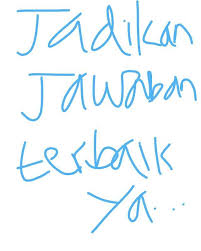 Jadikan
Jawaban
terbaik
Ya...